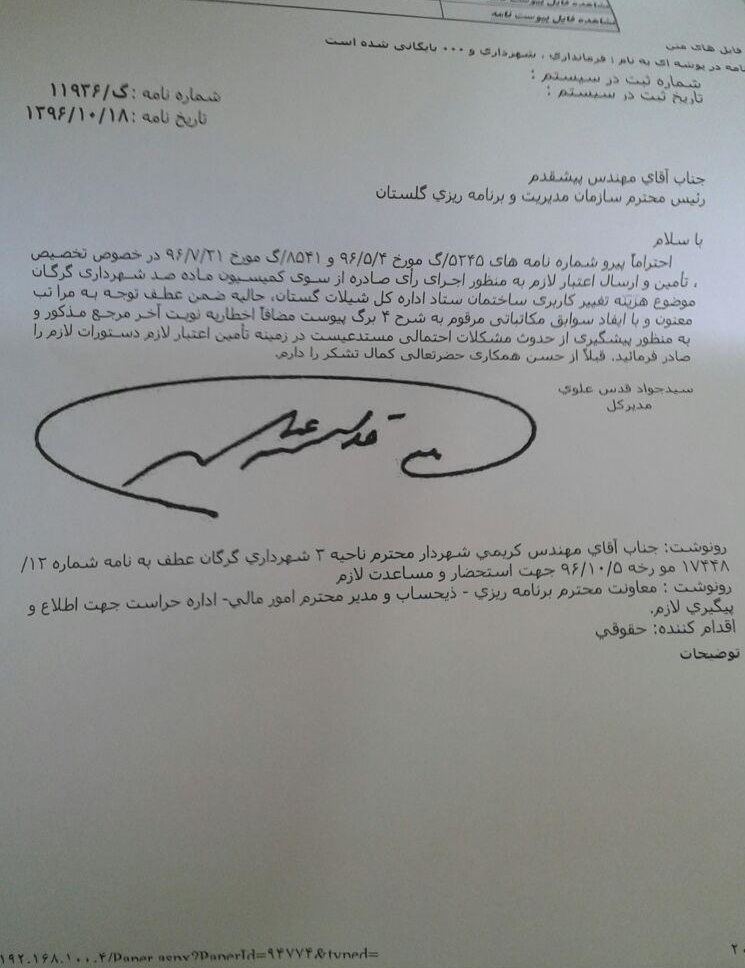 مشاهده فایل پیوست نامه
مشاهده فایل پیوست نامه
فایل های متن
نامه در پوشه ای به نام : فرمانداری ، شهرداری و ۰۰۰ بایگانی شده است
شماره ثبت در سیستم :
تاریخ ثبت در سیستم :
شماره نامه :گ/۱۱۹۳۶
تاریخ نامه :۱۳۹۶/۱۰/۱۸
جناب آقاي مهندس پیشقدم
رئیس محترم سازمان مدیریت و برنامه ریزي گلستان
با سلام
احتراماً پیرو شماره نامه های ۵۲۴۵/گ مورخ ۹۶/۵/۴ و ۸۵۴۱/گ مورخ ۹۶/۷/۲۱ در خصوص تخصیص
، تأمین و ارسال اعتبار لازم به منظور اجرای رأی صادره از سوی کمیسیون ماده صد شهرداری گرگان
موضوع هزینه تغییر کاربری ساختمان ستاد اداره کل شیلات گستان، حالیه ضمن عطف توجه به مرا تب
معنون و با ایفاد سوابق مکاتباتی مرقوم به شرح ۴ برگ پیوست مضافاً اخطاریه نوبت آخر مرجع مذکور و
به منظور پیشگیری از حدوث مشکلات احتمالی مستدعیست در زمینه تأمین اعتبار لازم دستورات لازم را
صادر فرمائید. قبلاً از حسن همکاری حضرتعالی کمال تشکر را دارم.
سیدجواد قدس علوي
مدیرکل
رونوشت: جناب آقاي مهندس کریمي شهردار محترم ناحیه ۳ شهرداري گرگان عطف به نامه شماره ۱۲/
۱۷۴۴۸ مو رخه ۹۶/۱۰/۵ جهت استحضار و مساعدت لازم
رونوشت : معاونت محترم برنامه ریزي - ذیحساب و مدیر محترم امور مالي- اداره حراست جهت اطلاع و
پیگیري لازم.
اقدام کننده: حقوقي
توضیحات
۱۹۲.۱۶۸.۱۰۰.۴/Paper.aspx?PaperId=۹۴۷۷۴&typed=